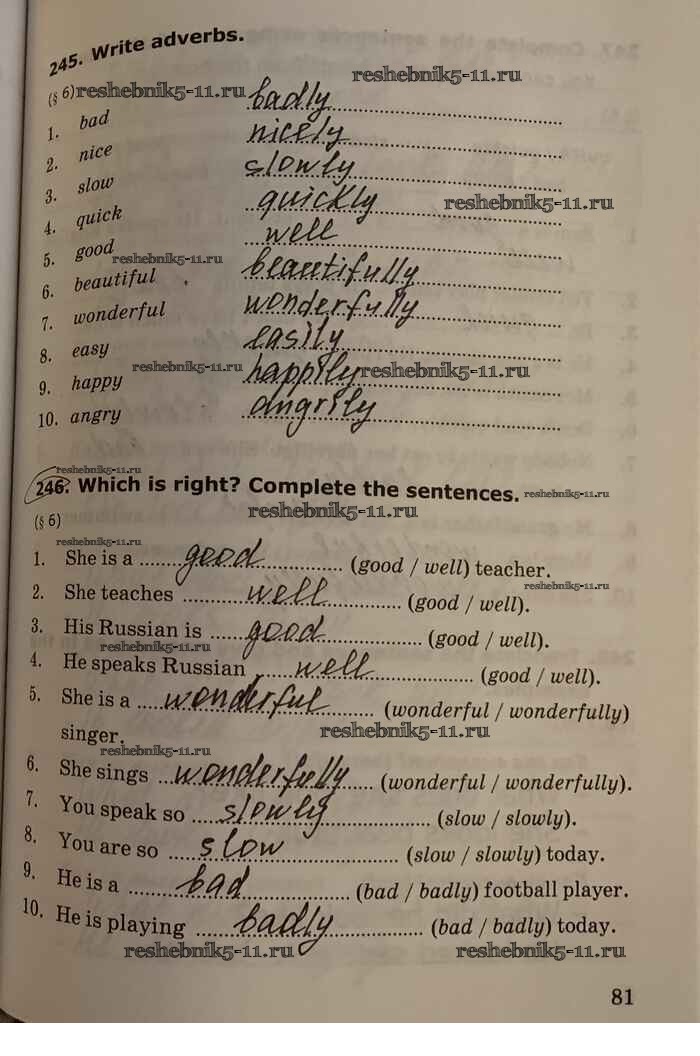 245. Write adverbs.
reshebnik5-11.ru
(§ 6) reshebnik5-11.ru
1. bad badly
2. nice nicely
3. slow slowly
4. quick quickly reshebnik5-11.ru
5. good well
reshebnik5-11.ru
6. beautiful beautifully
7. wonderful wonderfully
8. easy easily
reshebnik5-11.ru
9. happy happily reshebnik5-11.ru
10. angry angrily
reshebnik5-11.ru
246. Which is right? Complete the sentences. reshebnik5-11.ru
reshebnik5-11.ru
(§ 6)
reshebnik5-11.ru
1. She is a good (good / well) teacher.
reshebnik5-11.ru
2. She teaches well (good / well).
3. His Russian is good (good / well).
reshebnik5-11.ru
4. He speaks Russian well (good / well).
5. She is a wonderful (wonderful / wonderfully)
singer. reshebnik5-11.ru
reshebnik5-11.ru
6. She sings wonderfully (wonderful / wonderfully).
7. You speak so slowly (slow / slowly).
8. You are so slow (slow / slowly) today.
9. He is a bad (bad / badly) football player.
10. He is playing badly (bad / badly) today.
reshebnik5-11.ru reshebnik5-11.ru
81